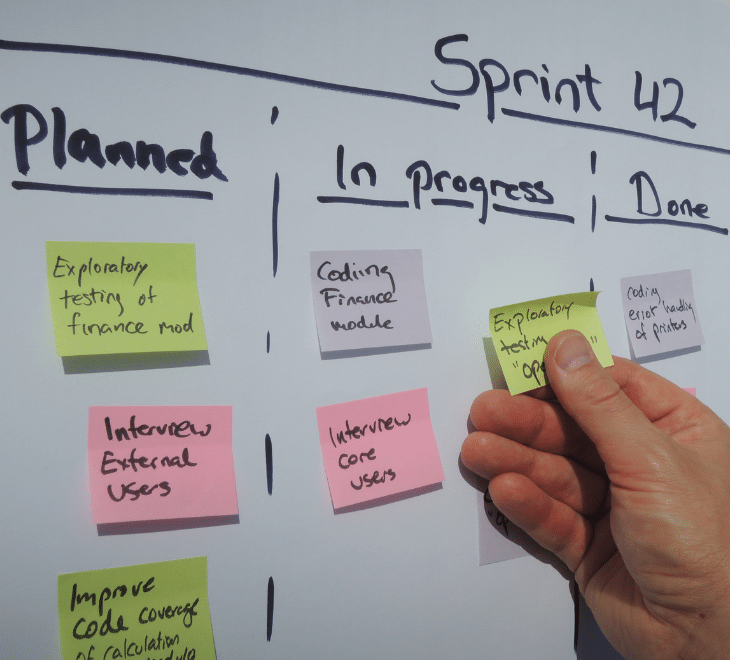 Sprint 42
Planned
In progress
Done
Exploratory
testing of
finance mod
Interview
External
Users
Improve
code coverage
of calculation
Codiing
Finance
module
Interview
core
users
Exploratory
testing
Coding
error handling
of printers